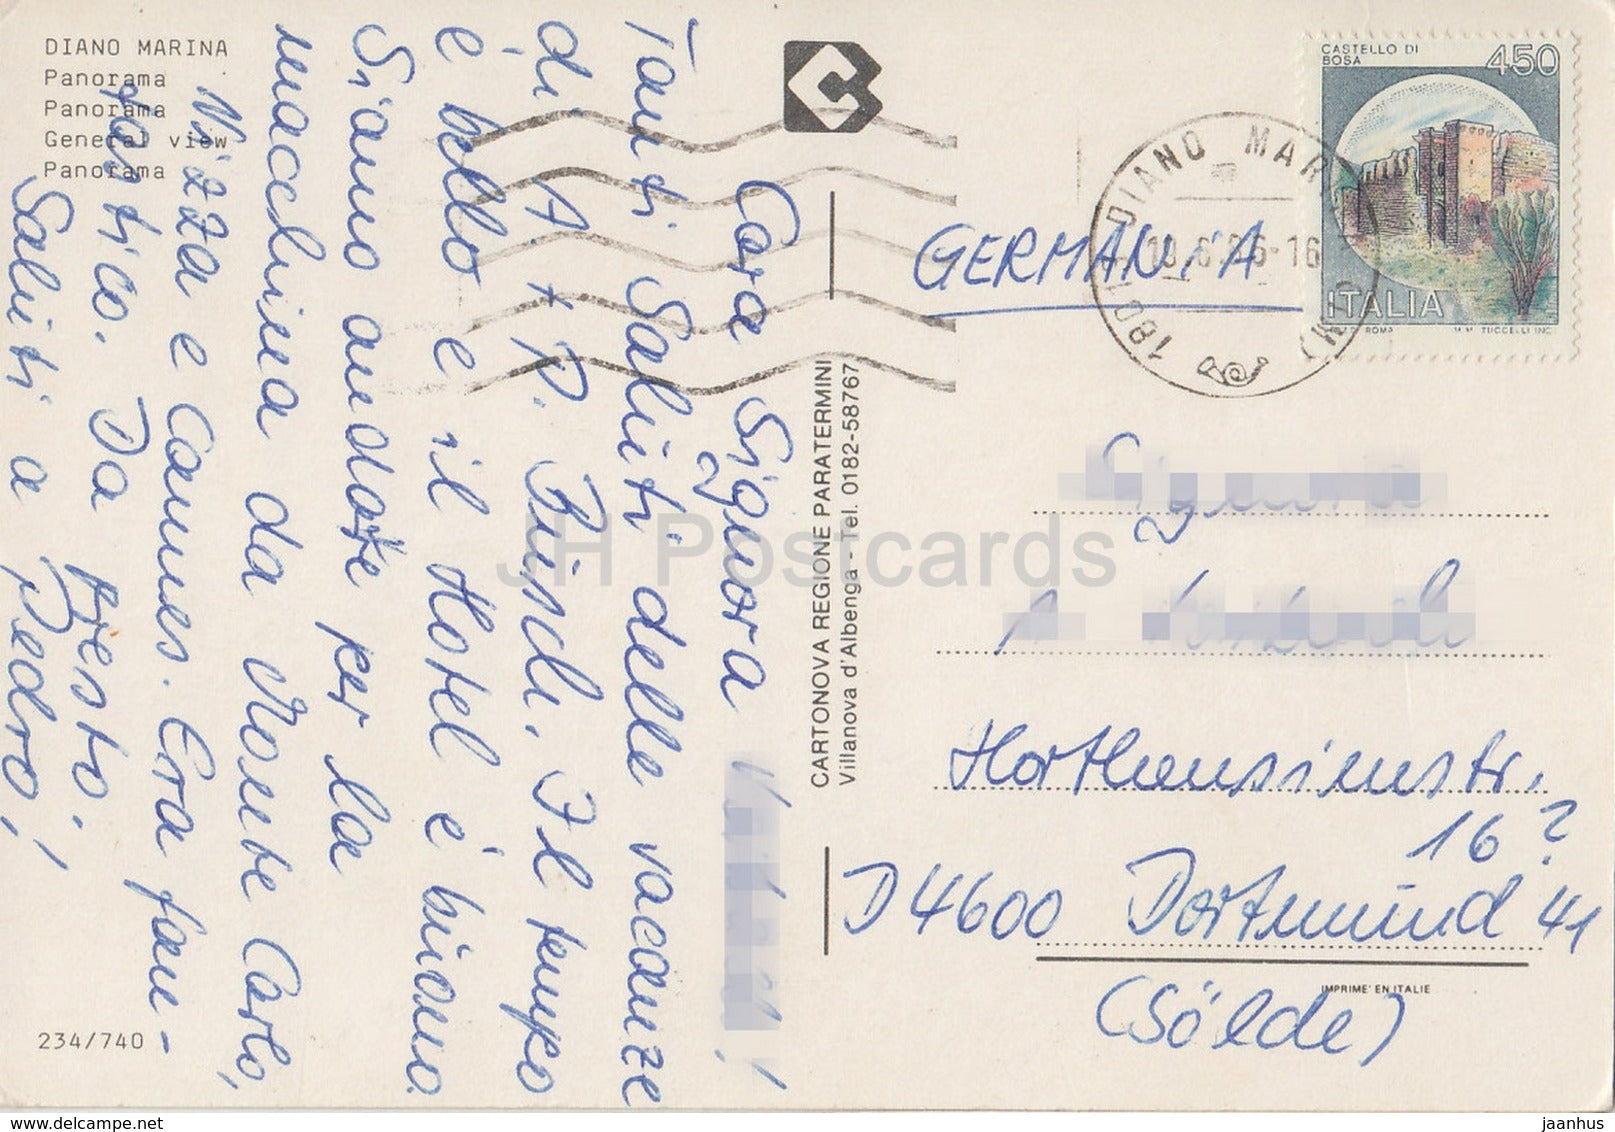 DIANO MARINA
Panorama
Panorama
General view
Panorama
Cara Signora
Tanti Saluti delle vacanze
di A + P. Il tempo
è bello e il Hotel é buono.
Siamo andate per la
macchina da Monte Carlo,
Nizza e Cannes. Era fan-
tastico. Da presto.
Saluti a Pedro!
234/740
CARTONOVA REGIONE PARATERMINI
Villanova d'Albenga - Tel. 0182-58767
CASTELLO DI
BOSA
450
ITALIA
ROMA
M.M. TUCCELLI INC.
DIANO MAR
GERMANIA
Signora
Horthensienstr.
16?
D 4600 Dortmund 41
(Sölde)
IMPRIME' EN ITALIE
JH Postcards
www.delcampe.net
jaanhus